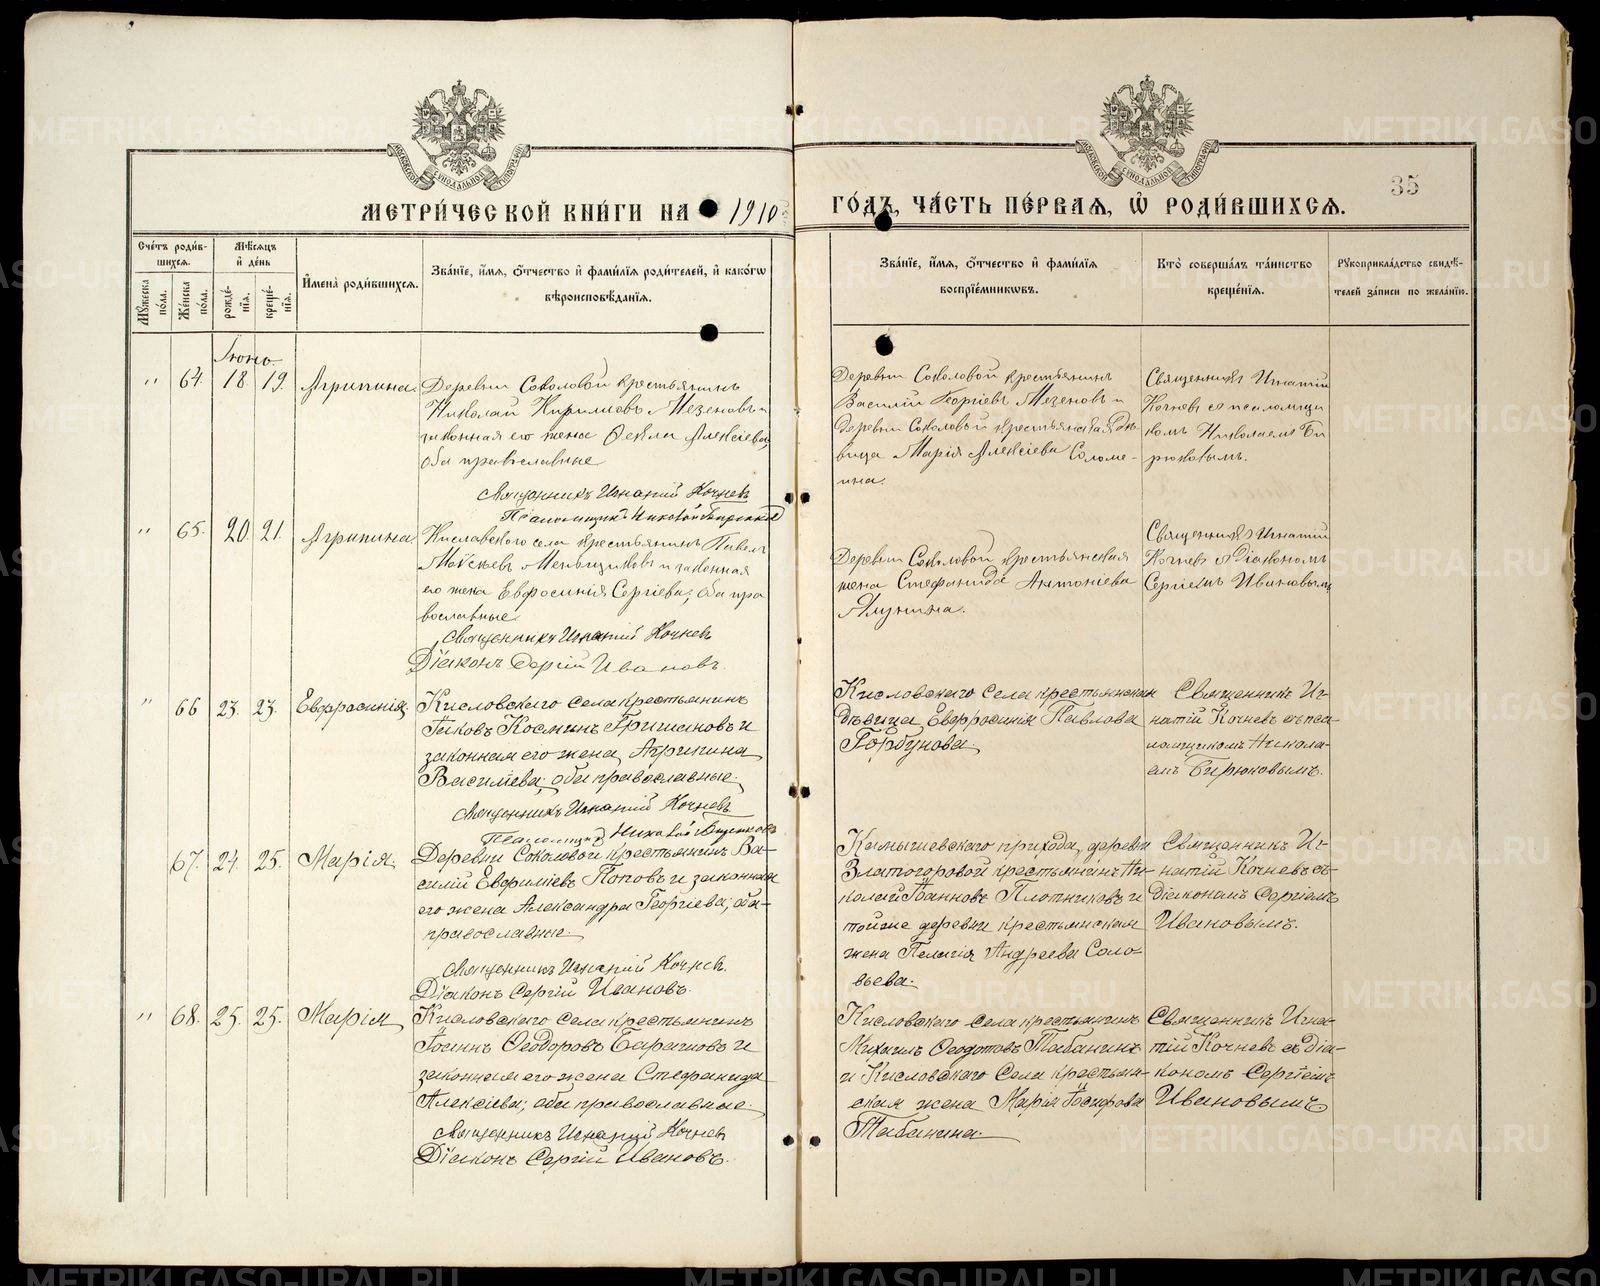 МЕТРИЧЕСКОЙ КНИГИ НА 1910
ГОДЪ, ЧАСТЬ ПЕРВАЯ, Ѿ РОДИВШИХСЯ.
35
Счетъ родив-
шихся.
Мѣсяцъ
и день
Мужеска
пола.
Женска
пола.
рожде-
нія.
креще-
нія.
Имена родившихся.
Званіе, имя, отчество и фамилія родителей, и какогѡ
вѣроисповѣданія.
Званіе, имя, отчество и фамилія
воспріемникѡвъ.
Кто совершалъ таинство
крещенія.
Рукоприкладство свидѣ-
телей записи по желанію.
Іюнь
" 64. 18. 19. Агрипина.
Деревни Соколовой крестьянинъ
Николай Кириловъ Мезеновъ и
законная его жена Ѳекла Алексіева,
оба православные
Священникъ Игнатій Кочневъ
Псаломщикъ Николай Бирюков
Деревни Соколовой крестьянинъ
Василій Георгіевъ Мезеновъ и
деревни Соколовой крестьянская дѣ-
вица Марія Алексіева Соломе-
ина.
Священникъ Игнатій
Кочнев с псаломщи
комъ Николаемъ Би
рюковымъ.
" 65. 20. 21. Агрипина
Кисловского села крестьянинъ Павелъ
Моѵсеевъ Меньщиковъ и законная
его жена Евфросинія Сергіева; оба пра
вославные
Священникъ Игнатій Кочнев
Діаконъ Сергій Ивановъ.
Деревни Соколовой крестьянская
жена Стефанида Антоніева
Ялунина.
Священникъ Игнатій
Кочнев с Діакономъ
Сергіемъ Ивановым
" 66 23. 23. Евфросинія.
Кисловскаго села крестьянинъ
Іаковъ Космин Гришановъ и
законная его жена Агрипина
Василіева; оба православные.
Священникъ Игнатій Кочневъ
Псаломщик Николай Бирюковъ
Кисловскаго села крестьянская
дѣвица Евфросинія Павлова
Горбунова
Священникъ Иг-
натій Кочневъ съ пса-
ломщикомъ Никола-
емъ Бирюковымъ.
67. 24. 25. Марія.
Деревни Соколовой крестьянинъ Ва-
силій Евфиміевъ Поповъ и законная
его жена Александра Георгіева; оба-
православные.
Священникъ Игнатій Кочнев.
Діаконъ Сергій Ивановъ.
Камышевскаго прихода, деревни
Златогоровой крестьянинъ Ни-
колай Іоанновъ Плотниковъ и
той же деревни крестьянская
жена Пелагія Андреева Соло-
вьева.
Священникъ Иг-
натій Кочневъ съ
діакономъ Сергіемъ
Ивановымъ.
" 68. 25. 25. Марія
Кисловскаго села крестьянинъ
Іоаннъ Ѳеодоровъ Барашковъ и
законная его жена Стефанида
Алексіева; оба православные.
Священникъ Игнатій Кочнев
Діаконъ Сергій Ивановъ.
Кисловскаго села крестьянинъ
Михаилъ Ѳеодотовъ Табанинъ
и Кисловскаго села крестьян-
ская жена Марія Іосифова
Табанина.
Священникъ Игна-
тій Кочневъ съ діа-
кономъ Сергіемъ
Ивановымъ
METRIKI.GASO-URAL.RU